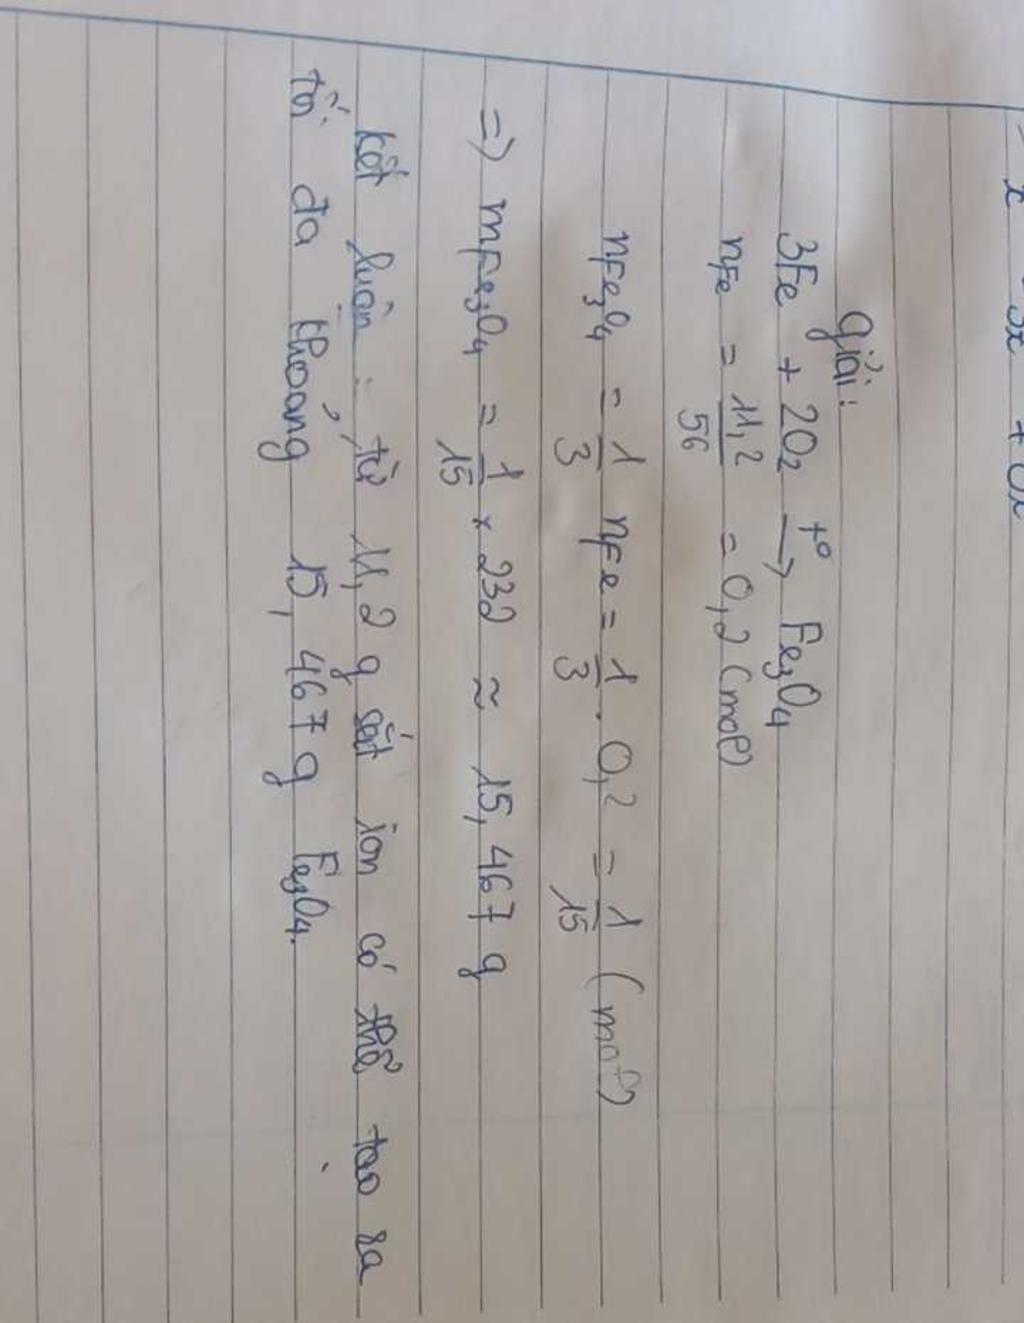 Giải:
3Fe + 2O₂ —t°→ Fe₃O₄
nFe = 11,2/56 = 0,2 (mol)
nFe₃O₄ = 1/3 nFe = 1/3 . 0,2 = 1/15 (mol)
=> mFe₃O₄ = 1/15 × 232 ≈ 15,467 g
kết luận : từ 11,2 g sắt ion có thể tạo ra
tối đa khoảng 15,467 g Fe₃O₄.